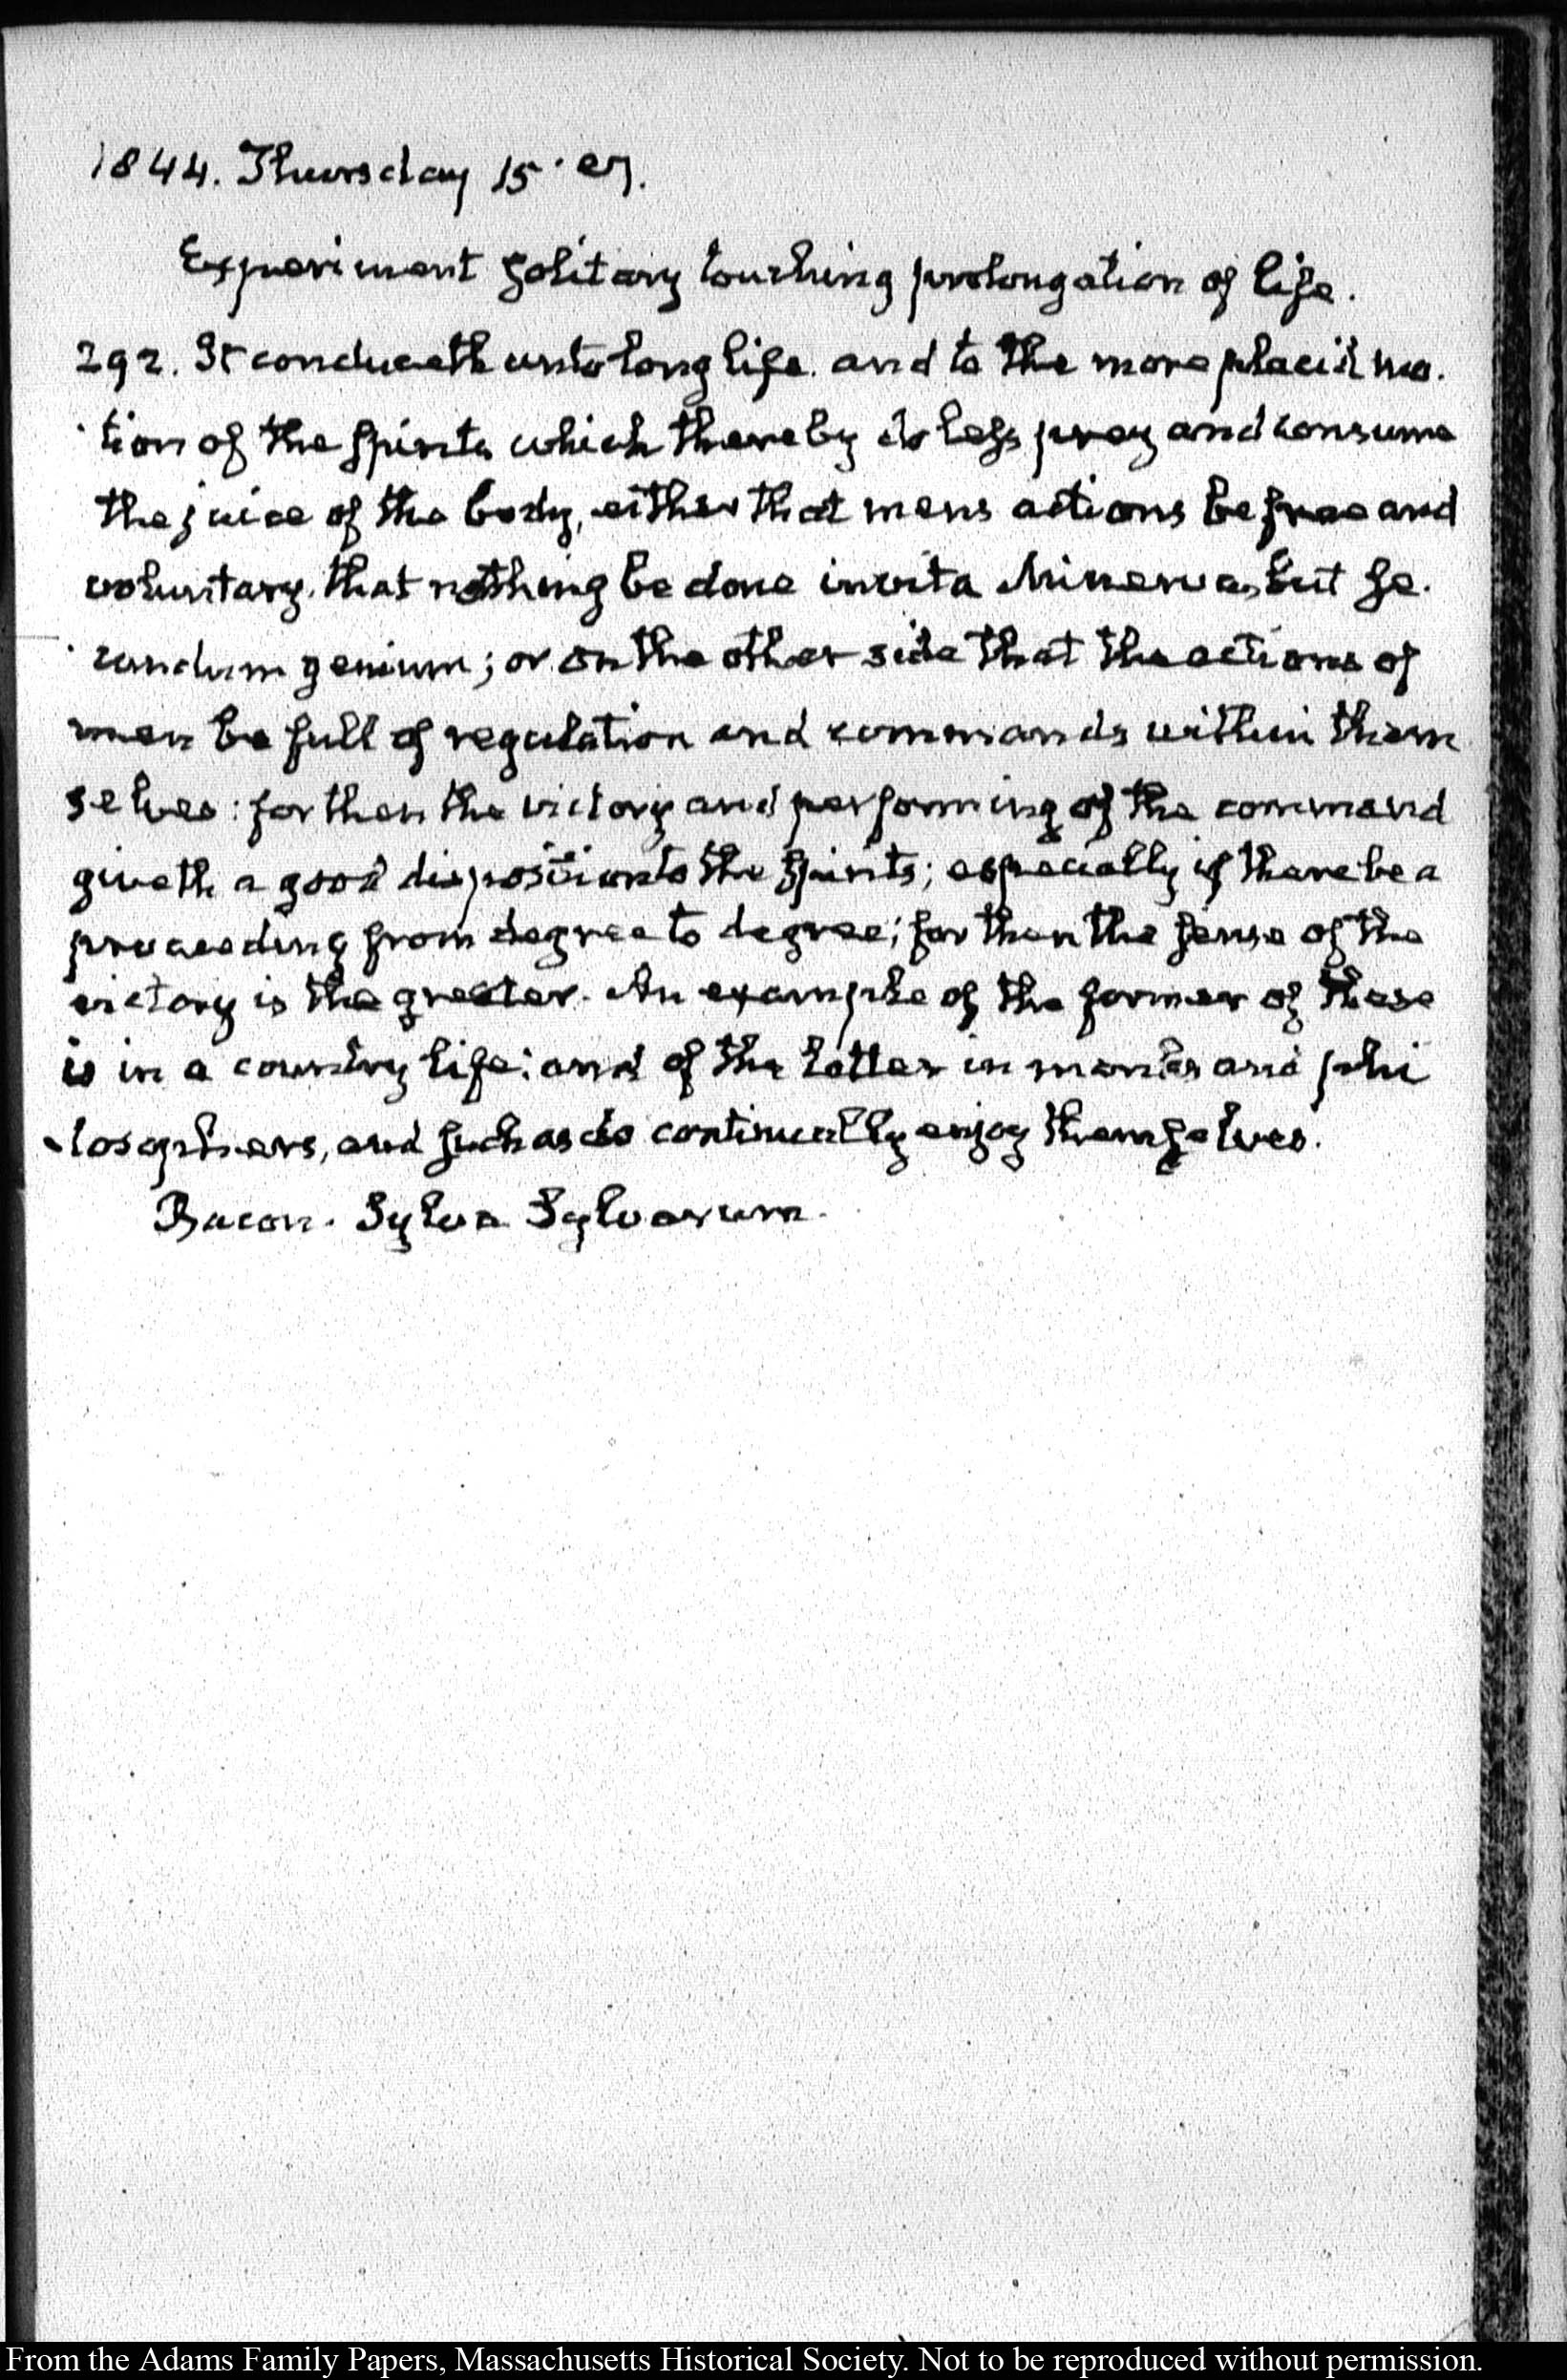 1844. Thursday 15.
Experiment Solitary touching prolongation of life.
292. It conduceth unto long life. and to the more placid mo.
tion of the Spirits which thereby do less prey and consume
the juice of the body, either that mens actions be free and
voluntary, that nothing be done invita Minerva, but Se.
cundum genium; or on the other side that the actions of
men be full of regulation and commands within them
selves: for then the victory and performing of the command
giveth a good disposition to the Spirits; especially if there be a
proceeding from degree to degree; for then the Sense of the
victory is the greater. An example of the former of these
is in a country life: and of the latter in monks and phi
losophers, and Such as do continually enjoy themselves.
Bacon. Sylva Sylvarum.
From the Adams Family Papers, Massachusetts Historical Society. Not to be reproduced without permission.